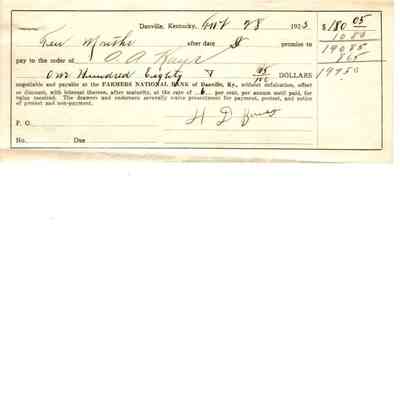 Danville, Kentucky, 28 1923 $ 180 05
10 80
Months after date I promise to 190 85
pay to the order of 8 65
One Hundred Eighty & 05/100 DOLLARS
negotiable and payable at the FARMERS NATIONAL BANK of Danville, Ky., without defalcation, offset
or discount, with interest thereon, after maturity, at the rate of 6 per cent. per annum until paid, for
value received. The drawers and endorsers severally waive presentment for payment, protest, and notice
of protest and non-payment.
P. O. H D
No. Due